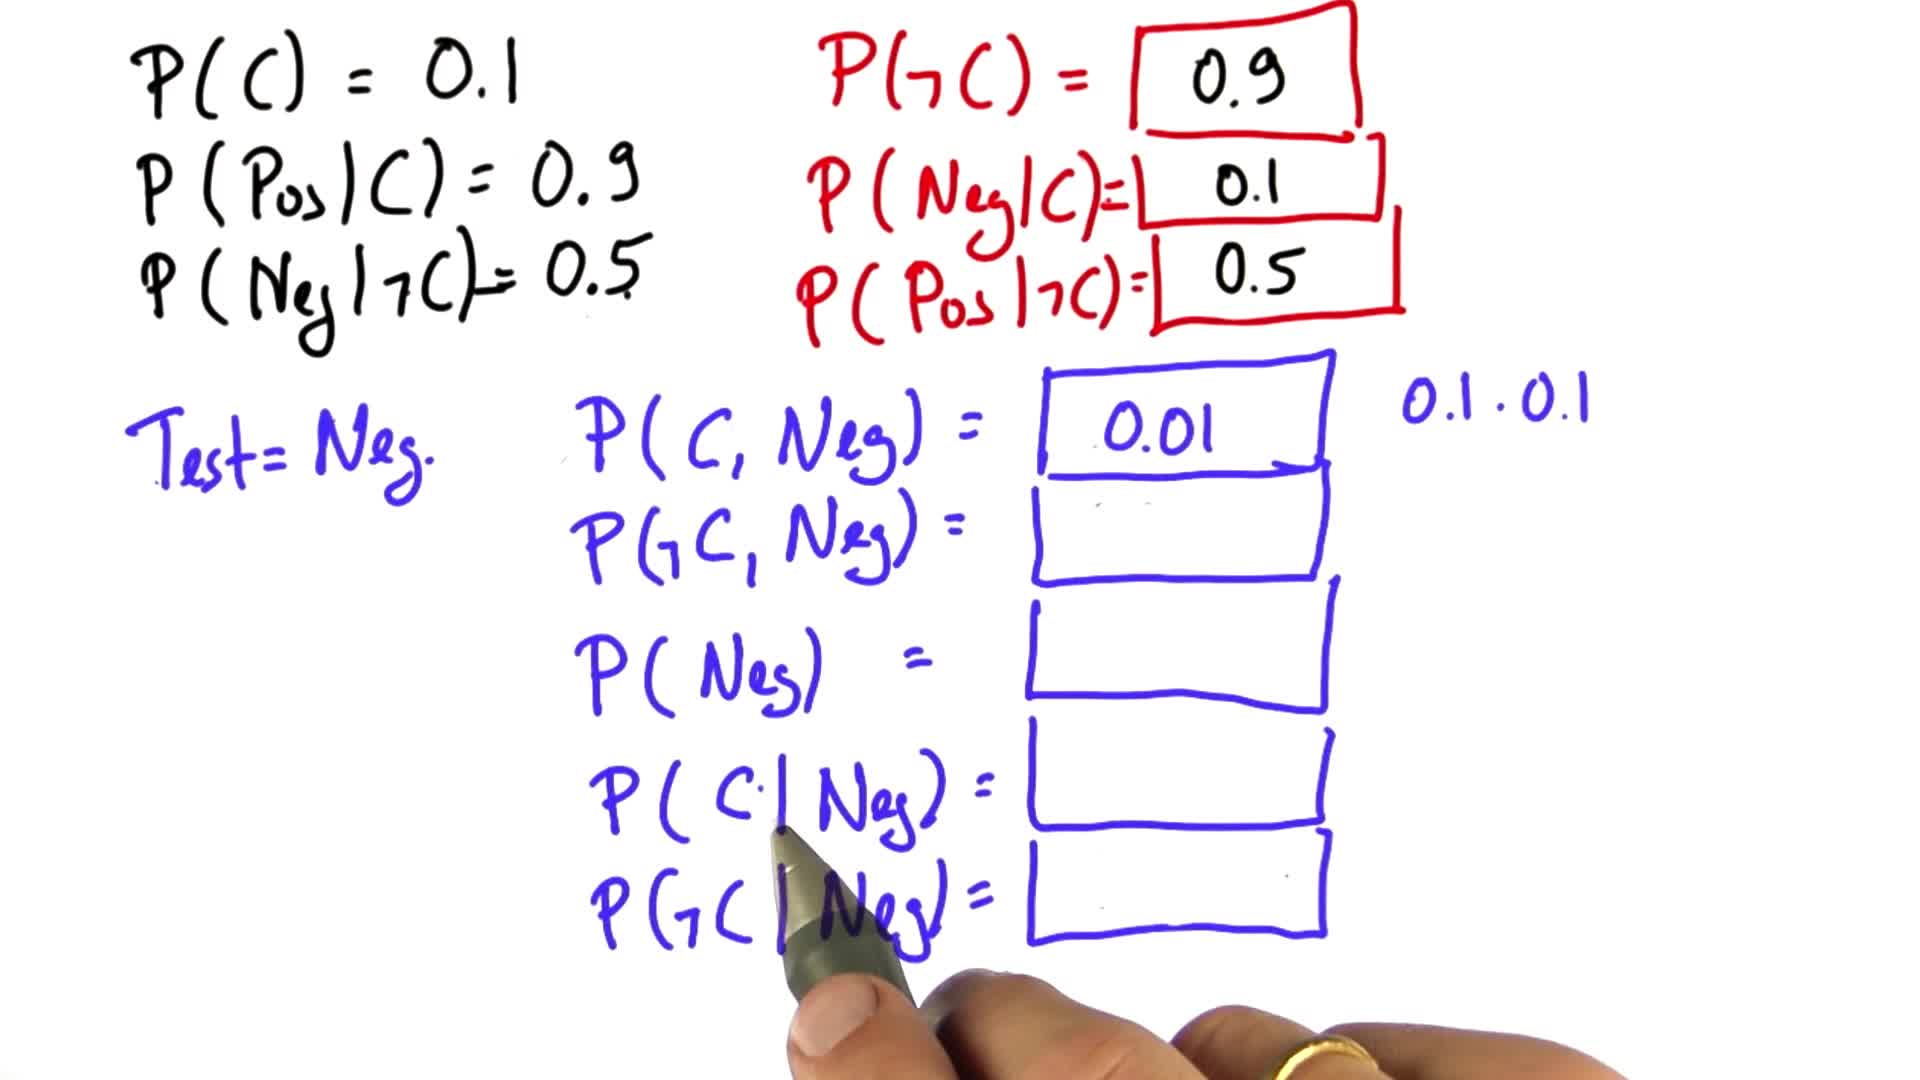 P(C) = 0.1
P(¬C) = 0.9
P(Pos|C) = 0.9
P(Neg|C) = 0.1
P(Neg|¬C) = 0.5
P(Pos|¬C) = 0.5
Test = Neg.
P(C, Neg) = 0.01
0.1 · 0.1
P(¬C, Neg) =
P(Neg) =
P(C|Neg) =
P(¬C|Neg) =